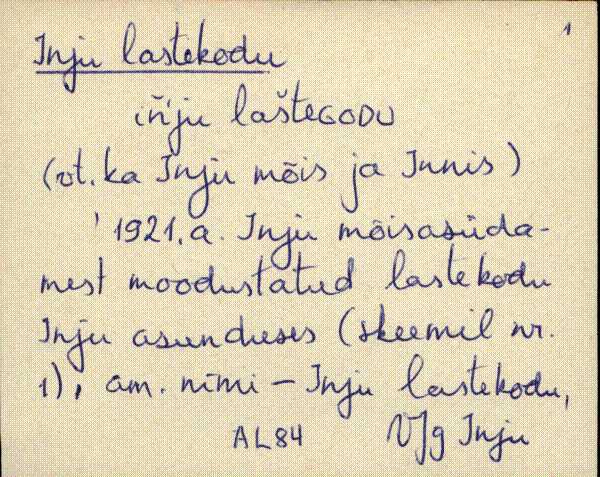 1
Inju lastekodu
iń'ju lašteGODU
(vt. ka Inju mõis ja Innis)
' 1921. a. Inju mõisasüda-
mest moodustatud lastekodu
Inju asunduses (skeemil nr.
1), am. nimi – Inju lastekodu,
AL84 VJg Inju